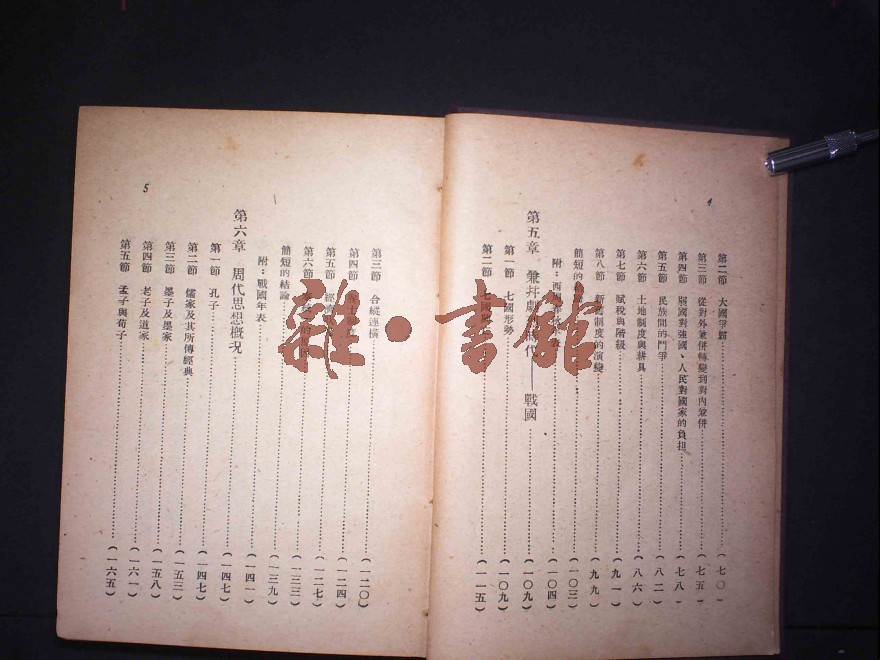 4
第二節 大國爭霸……(七〇)
第三節 從對外兼併轉變到對內兼併……(七五)
第四節 弱國對強國、人民對國家的負担……(七八)
第五節 民族間的鬥爭……(八二)
第六節 土地制度與耕具……(八六)
第七節 賦稅與階級……(九一)
第八節 新舊制度的演變……(九九)
簡短的……(一〇三)
附：西……(一〇四)
第五章 兼并劇……時代——戰國……(一〇九)
第一節 七國形勢……(一〇九)
第二節 七國……(一一五)
第三節 合縱連橫……(一二〇)
第四節……(一二四)
第五節 經……(一二七)
第六節……(一三三)
簡短的結論……(一三九)
附：戰國年表……(一四一)
第六章 周代思想概况……(一四七)
第一節 孔子……(一四七)
第二節 儒家及其所傳經典……(一五三)
第三節 墨子及墨家……(一五八)
第四節 老子及道家……(一六一)
第五節 孟子與荀子……(一六五)
5
雜·書館